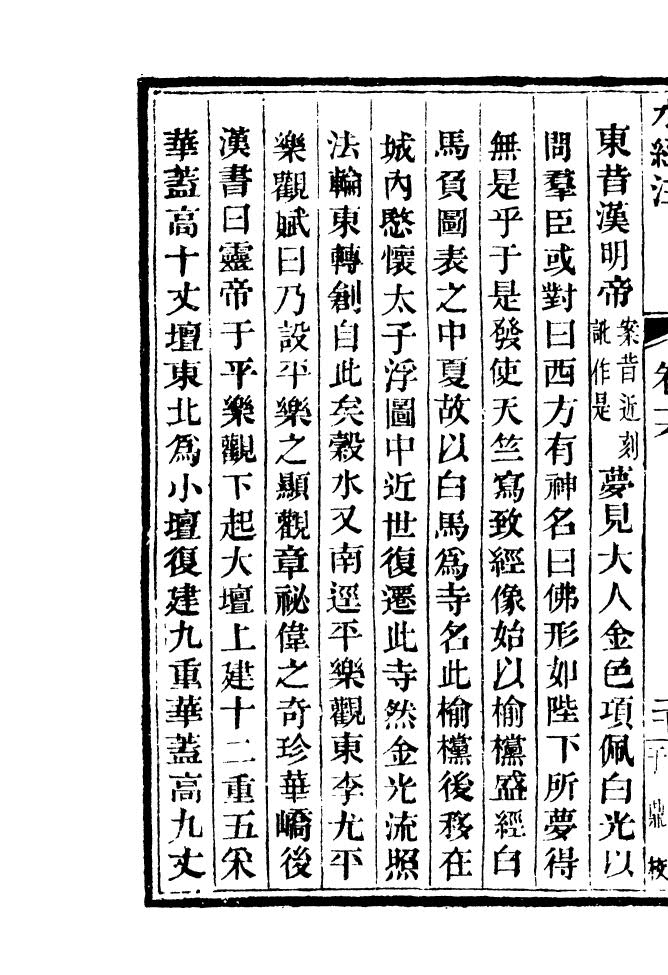 水經注 卷十六
東昔漢明帝案昔近刻訛作是夢見大人金色項佩白光以
問羣臣或對曰西方有神名曰佛形如陛下所夢得
無是乎于是發使天竺寫致經像始以榆欓盛經白
馬負圖表之中夏故以白馬爲寺名此榆欓後移在
城內愍懷太子浮圖中近世復遷此寺然金光流照
法輪東轉創自此矣穀水又南逕平樂觀東李尤平
樂觀賦曰乃設平樂之顯觀章祕偉之奇珍華嶠後
漢書曰靈帝于平樂觀下起大壇上建十二重五采
華蓋高十丈壇東北爲小壇復建九重華蓋高九丈